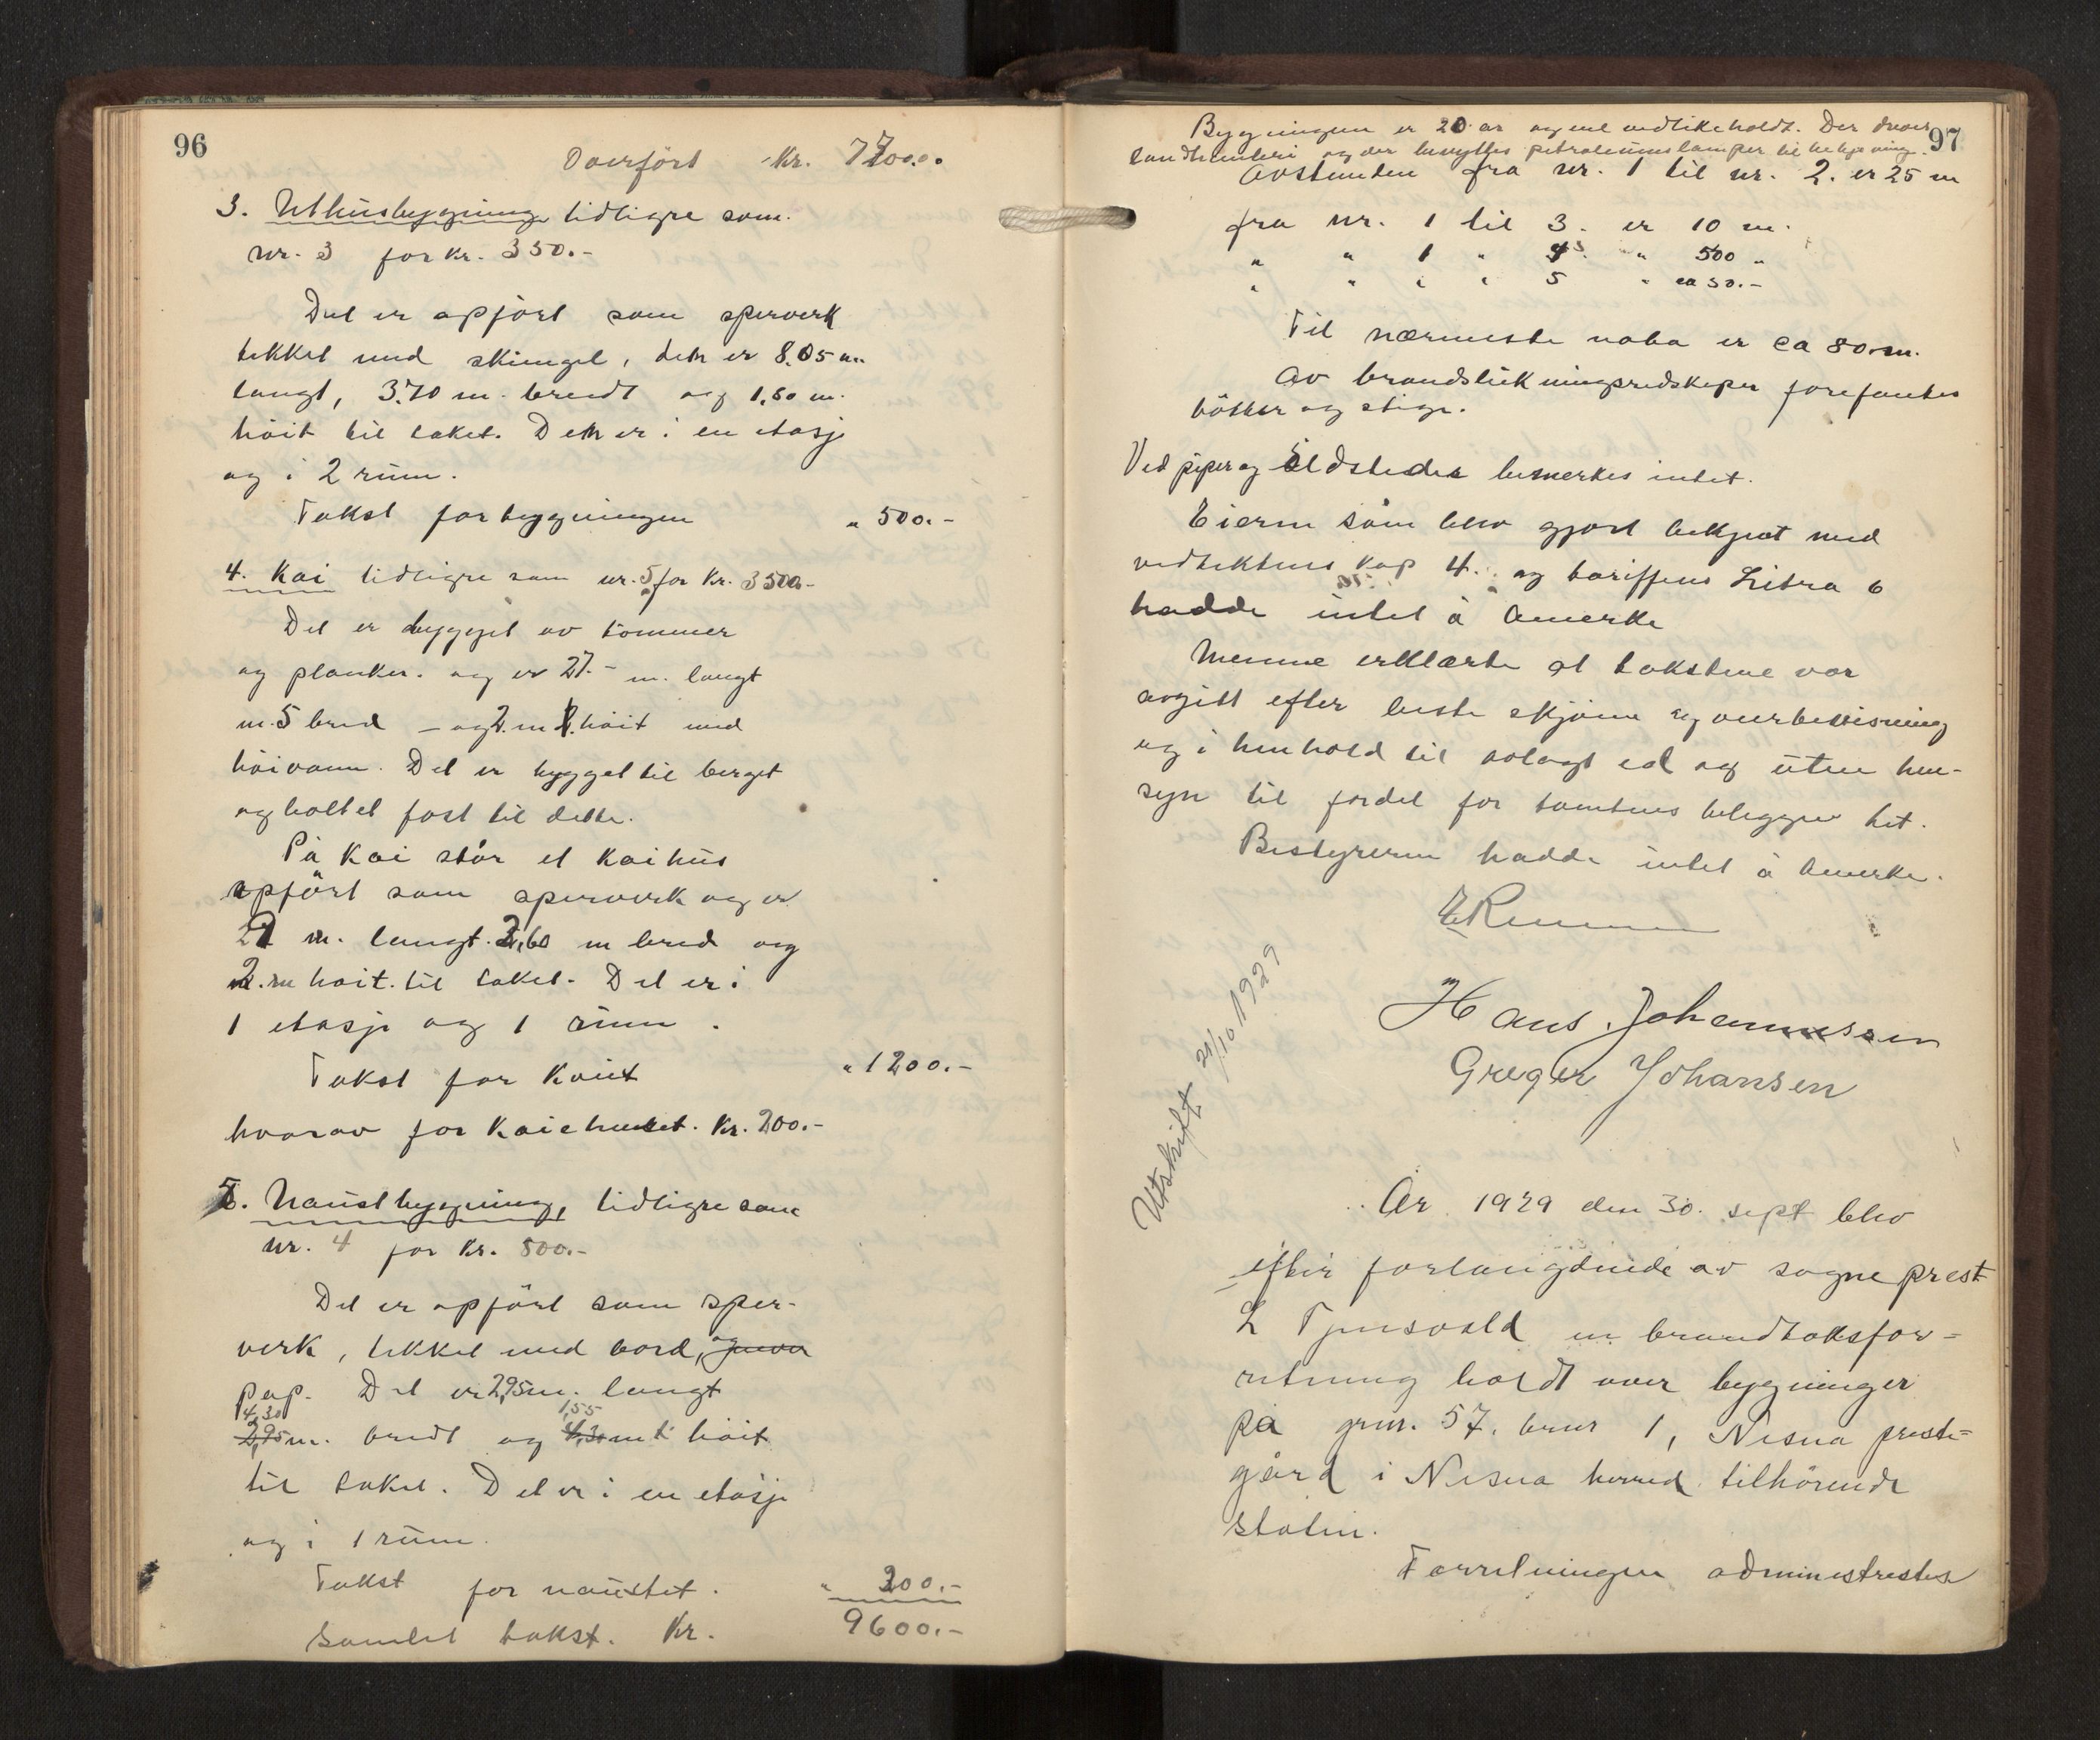 96
Overført Kr. 7700.00
3. Uthusbygning tidligre som
nr. 3 for kr. 350.-
Det er opført som sperverk
tekket med skiengel, den er 8.05 m
langt, 3.70 m. bredt og 1,50 m.
höit til taket. Den er i en etasje
og i 2 rum.
Takst for bygningen " 500.-
4. Kai tidligre som nr. 5 for Kr. 3500.-
Det er bygget av tömmer
og planker. og er 27.- m. langt
m. 5 bred - og 2. m höit med
höivann. Det er bygget til berget
og boltet fast til dette.
På kai står et kaihus
opfört som sperverk og er
m. langt. 2,60 m bred og
2. m höit. til taket. Det er i
1 etasje og 1 rum.
Takst for Kaien " 1200.-
hvorav for Kaiehuset. Kr. 200.-
5. Naustbygning, tidligre som
nr. 4 for Kr. 500.-
Det er opfört som sper-
verk, tekket med bord, og
pap. Det er 7,95 m. langt
4,30 1,55
2,95 m. bredt og 4,30 mt höit
til taket. Det er i en etasje
og i 1 rum.
Takst for naustet. " 200.-
Samlet takst. Kr. 9600.-
97
Bygningen er 20 år og vel vedlikeholdt. Der drives
landhandleri og der benyttes petroleumslamper til belysning.
Avstanden fra nr. 1 til nr. 2. er 25 m
fra nr. 1 til 3. er 10 m.
" " 1 " 4 " 500 "
" " " " 5 " ca 50.-
Til nærmeste nabo er ca 80 m.
Av brandslukningsredskaper forefantes
bötter og stige.
Ved piper og ildsteder bemerkes intet.
Eieren som blev gjort bekjent med
vedtektens kap 4. og tariffens Litra 6
hadde intet å bemerke
Mennene erklærte at takstene var
avgitt efter beste skjönn og overbevisning
og i henhold til avlagt ed og uten hen-
syn til fordel for tomtens beliggenhet.
Bestyreren hadde intet å bemerke.
Hans Johannessen
Greger Johansen
Utskift 21/10 1929
År 1929 den 30. sept blev
efter forlangende av sogneprest
L Tjensvold en brandtaksfor-
retning holdt over bygninger
på gnr. 57. bnr 1, Nesna preste-
gård i Nesna herred tilhörende
staten.
Forretningen administrertes